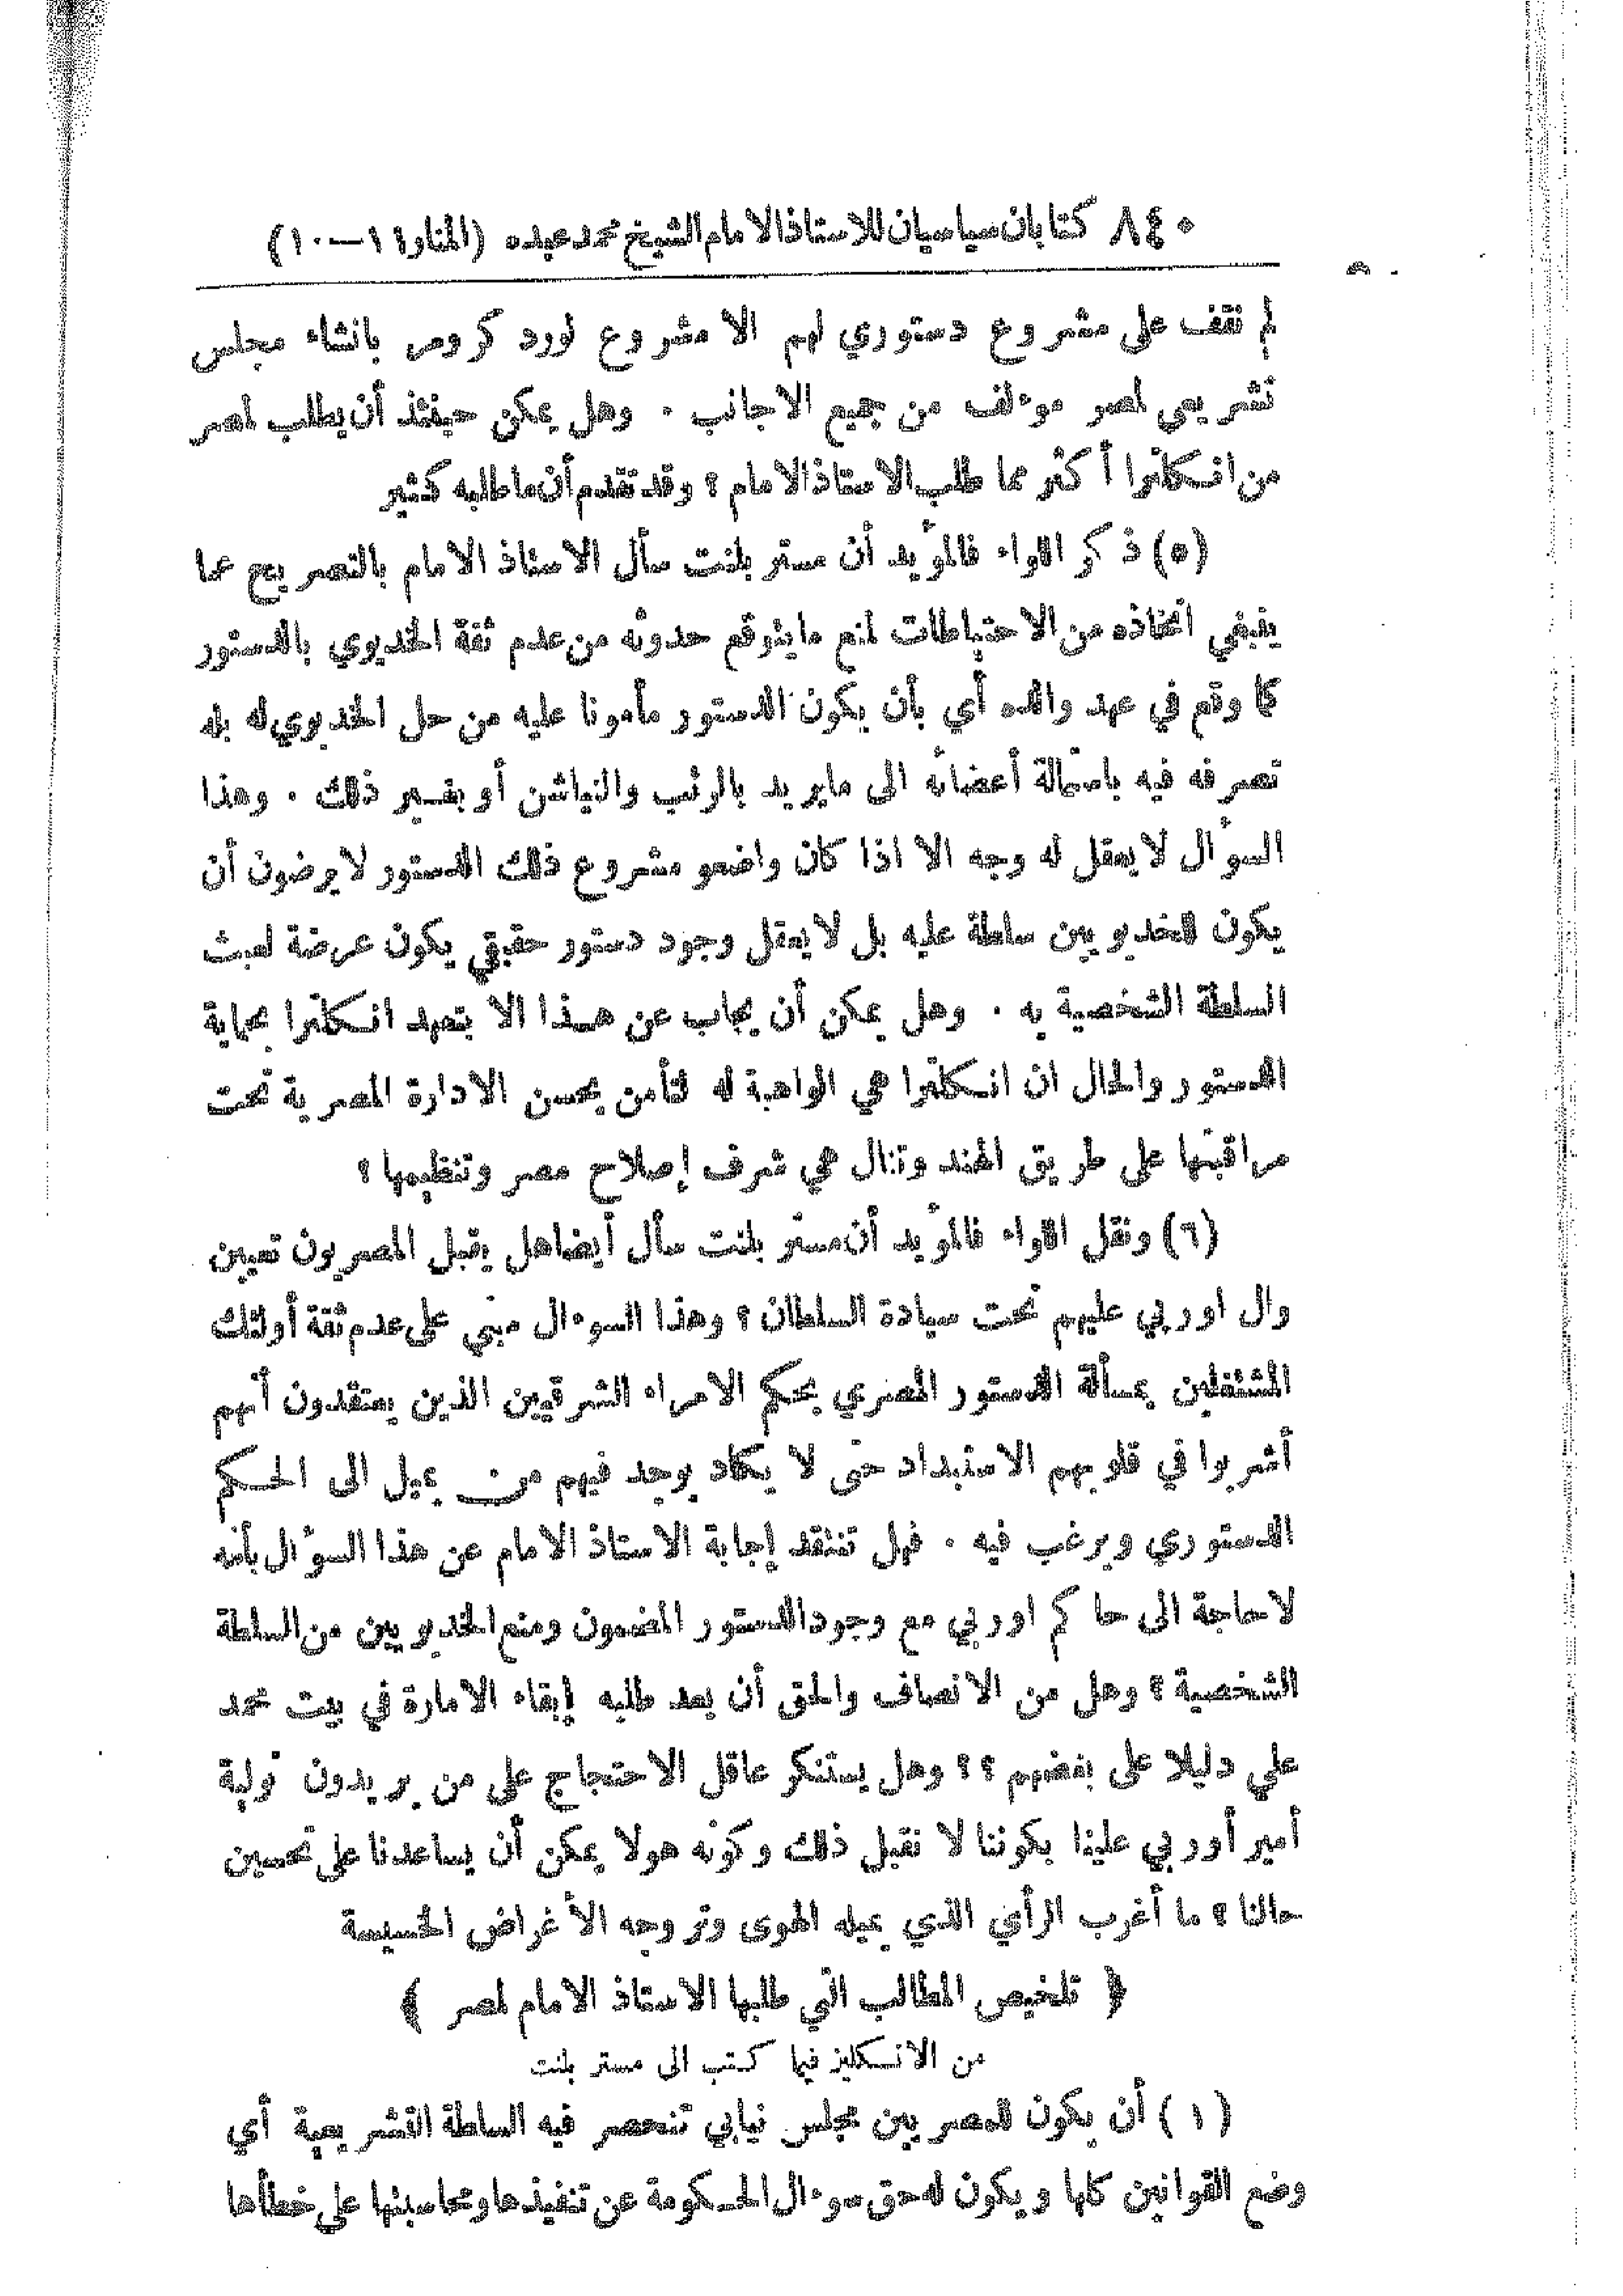 ٨٤٠ كتابان سياسيان للاستاذ الامام الشيخ محمد عبده (المنار ١١–١٠)
لم نقف على مشروع دستوري لهم الا مشروع لورد كرومر بانشاء مجلس
تشريعي لمصر موءلف من جميع الاجانب . وهل يمكن حينئذ أن يطلب لمصر
من انكلترا أكثر مما طلب الاستاذ الامام ؟ وقد تقدم أن ما طلبه كثير
(٥) ذكر اللواء فالمؤيد أن مستر بلنت سأل الاستاذ الامام بالتصريح عما
ينبغي اتخاذه من الاحتياطات لمنع ما يتوقع حدوثه من عدم ثقة الخديوي بالدستور
كما وقع في عهد والده أي بأن يكون الدستور مأمونا عليه من حل الخديوي له بله
تصرفه فيه باستمالة أعضائه الى ما يريد بالرتب والنياشن أو بغير ذلك . وهذا
السؤال لا يعقل له وجه الا اذا كان واضعو مشروع ذلك الدستور لا يرضون أن
يكون للخديويين سلطة عليه بل لا يعقل وجود دستور حقيقي يكون عرضة لعبث
السلطة الشخصية به . وهل يمكن أن يجاب عن هذا الا بتعهد انكلترا بحماية
الدستور والحال ان انكلترا هي الواهبة له لتأمن بحسن الادارة المصرية تحت
مراقبتها على طريق الهند وتنال هي شرف إصلاح مصر وتنظيمها ؟
(٦) ونقل اللواء فالمؤيد أن مستر بلنت سأل أيضا هل يقبل المصريون تعيين
وال اوربي عليهم تحت سيادة السلطان ؟ وهذا السوءال مبني على عدم ثقة أولئك
المشتغلين بمسألة الدستور المصري بحكم الامراء الشرقيين الذين يعتقدون أنهم
أشربوا في قلوبهم الاستبداد حتى لا يكاد يوجد فيهم من يميل الى الحكم
الدستوري ويرغب فيه . فهل تنتقد إجابة الاستاذ الامام عن هذا السؤال بأنه
لا حاجة الى حاكم اوربي مع وجود الدستور المضمون ومنع الخديويين من السلطة
الشخصية ؟ وهل من الانصاف والحق أن يعد طلبه إبقاء الامارة في بيت محمد
علي دليلا على بغضهم ؟؟ وهل يستنكر عاقل الاحتجاج على من يريدون تولية
أمير أوربي علينا بكوننا لا نقبل ذلك وكونه هو لا يمكن أن يساعدنا على تحسين
حالنا ؟ ما أغرب الرأي الذي يميله الهوى وتروجه الأغراض الخسيسة
﴿ تلخيص المطالب التي طلبها الاستاذ الامام لمصر ﴾
من الانكليز فيما كتب الى مستر بلنت
(١) أن يكون للمصريين مجلس نيابي تنحصر فيه السلطة التشريعية أي
وضع القوانين كلها ويكون له حق سوءال الحكومة عن تنفيذها ومحاسبتها على خطأها